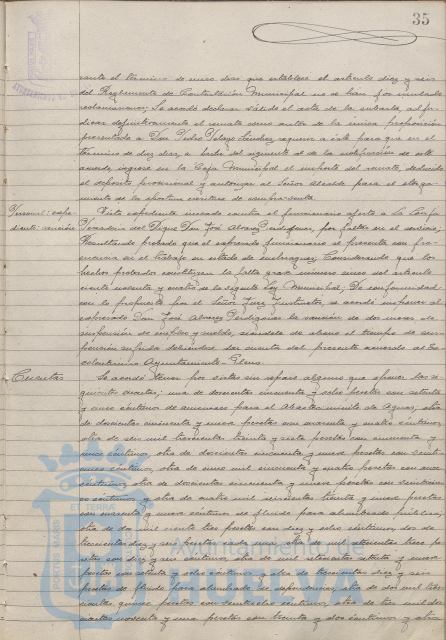 35
rante el término de cinco días que establece el artículo diez y seis
del Reglamento de Contratación Municipal no se han formulado
reclamaciones; Se acordó declarar válido el acto de la subasta, adju
dicar definitivamente el remate como autor de la única proposición
presentada a Don Pedro Pelayo Sánchez, requerir a éste para que en el
término de diez días, a partir del siguiente al de la notificación de este
acuerdo, ingrese en la Caja Municipal el importe del remate, deducido
el depósito provisional y autorizar al Señor Alcalde para el otorga
miento de la oportuna escritura de compra-venta.
Personal: expe
diente: sanción
Visto expediente incoado contra el funcionario afecto a la
del Don José Álvarez Perdigones, por faltas en el servicio;
Resultando probado que el expresado funcionario se presenta con fre
cuencia en el trabajo en estado de embriaguez; Considerando que los
hechos probados constituyen la falta grave número cinco del artículo
ciento noventa y cuatro de la vigente Ley Municipal; De conformidad
con lo propuesto por el Señor Juez Instructor, se acordó imponer al
expresado Don José Álvarez Perdigones la sanción de dos meses de
suspensión de empleo y sueldo, siéndole de abono el tiempo de sus
pensión sufrida debiéndose dar cuenta del presente acuerdo al Ex
celentísimo Ayuntamiento Pleno.
Cuentas
Se acordó tener por vistas sin reparo alguno que oponer las si
guientes cuentas; una de doscientas cincuenta y ocho pesetas con setenta
y cinco céntimos de para el Abastecimiento de Aguas; otra
de doscientas cincuenta y nueve pesetas con cuarenta y cuatro céntimos,
otra de seis mil trescientas treinta y siete pesetas con cincuenta y
cinco céntimos, otra de doscientas cincuenta y nueve pesetas con
céntimos, otra de cinco mil cincuenta y cuatro pesetas con
céntimos, otra de doscientas cincuenta y nueve pesetas con
céntimos, y otra de cuatro mil seiscientas treinta y nueve pesetas
con cuarenta y nueve céntimos de fluido para alumbrado público,
otra de dos mil ciento tres pesetas con diez y ocho céntimos, dos de
trescientas diez y seis pesetas cada una, otra de mil trece pe
setas con diez y seis céntimos, otra de mil setecientas setenta y nueve
pesetas con setenta y ocho céntimos y otra de trescientas diez y seis
pesetas de fluido para alumbrado de dependencias, otra de dos mil tres
cientas quince pesetas con céntimos, otra de tres mil dos
cientas noventa y una pesetas con treinta y dos céntimos y otra
PORTUS MARIS
ET TERRÆ
Ayuntamiento de
HUELVA